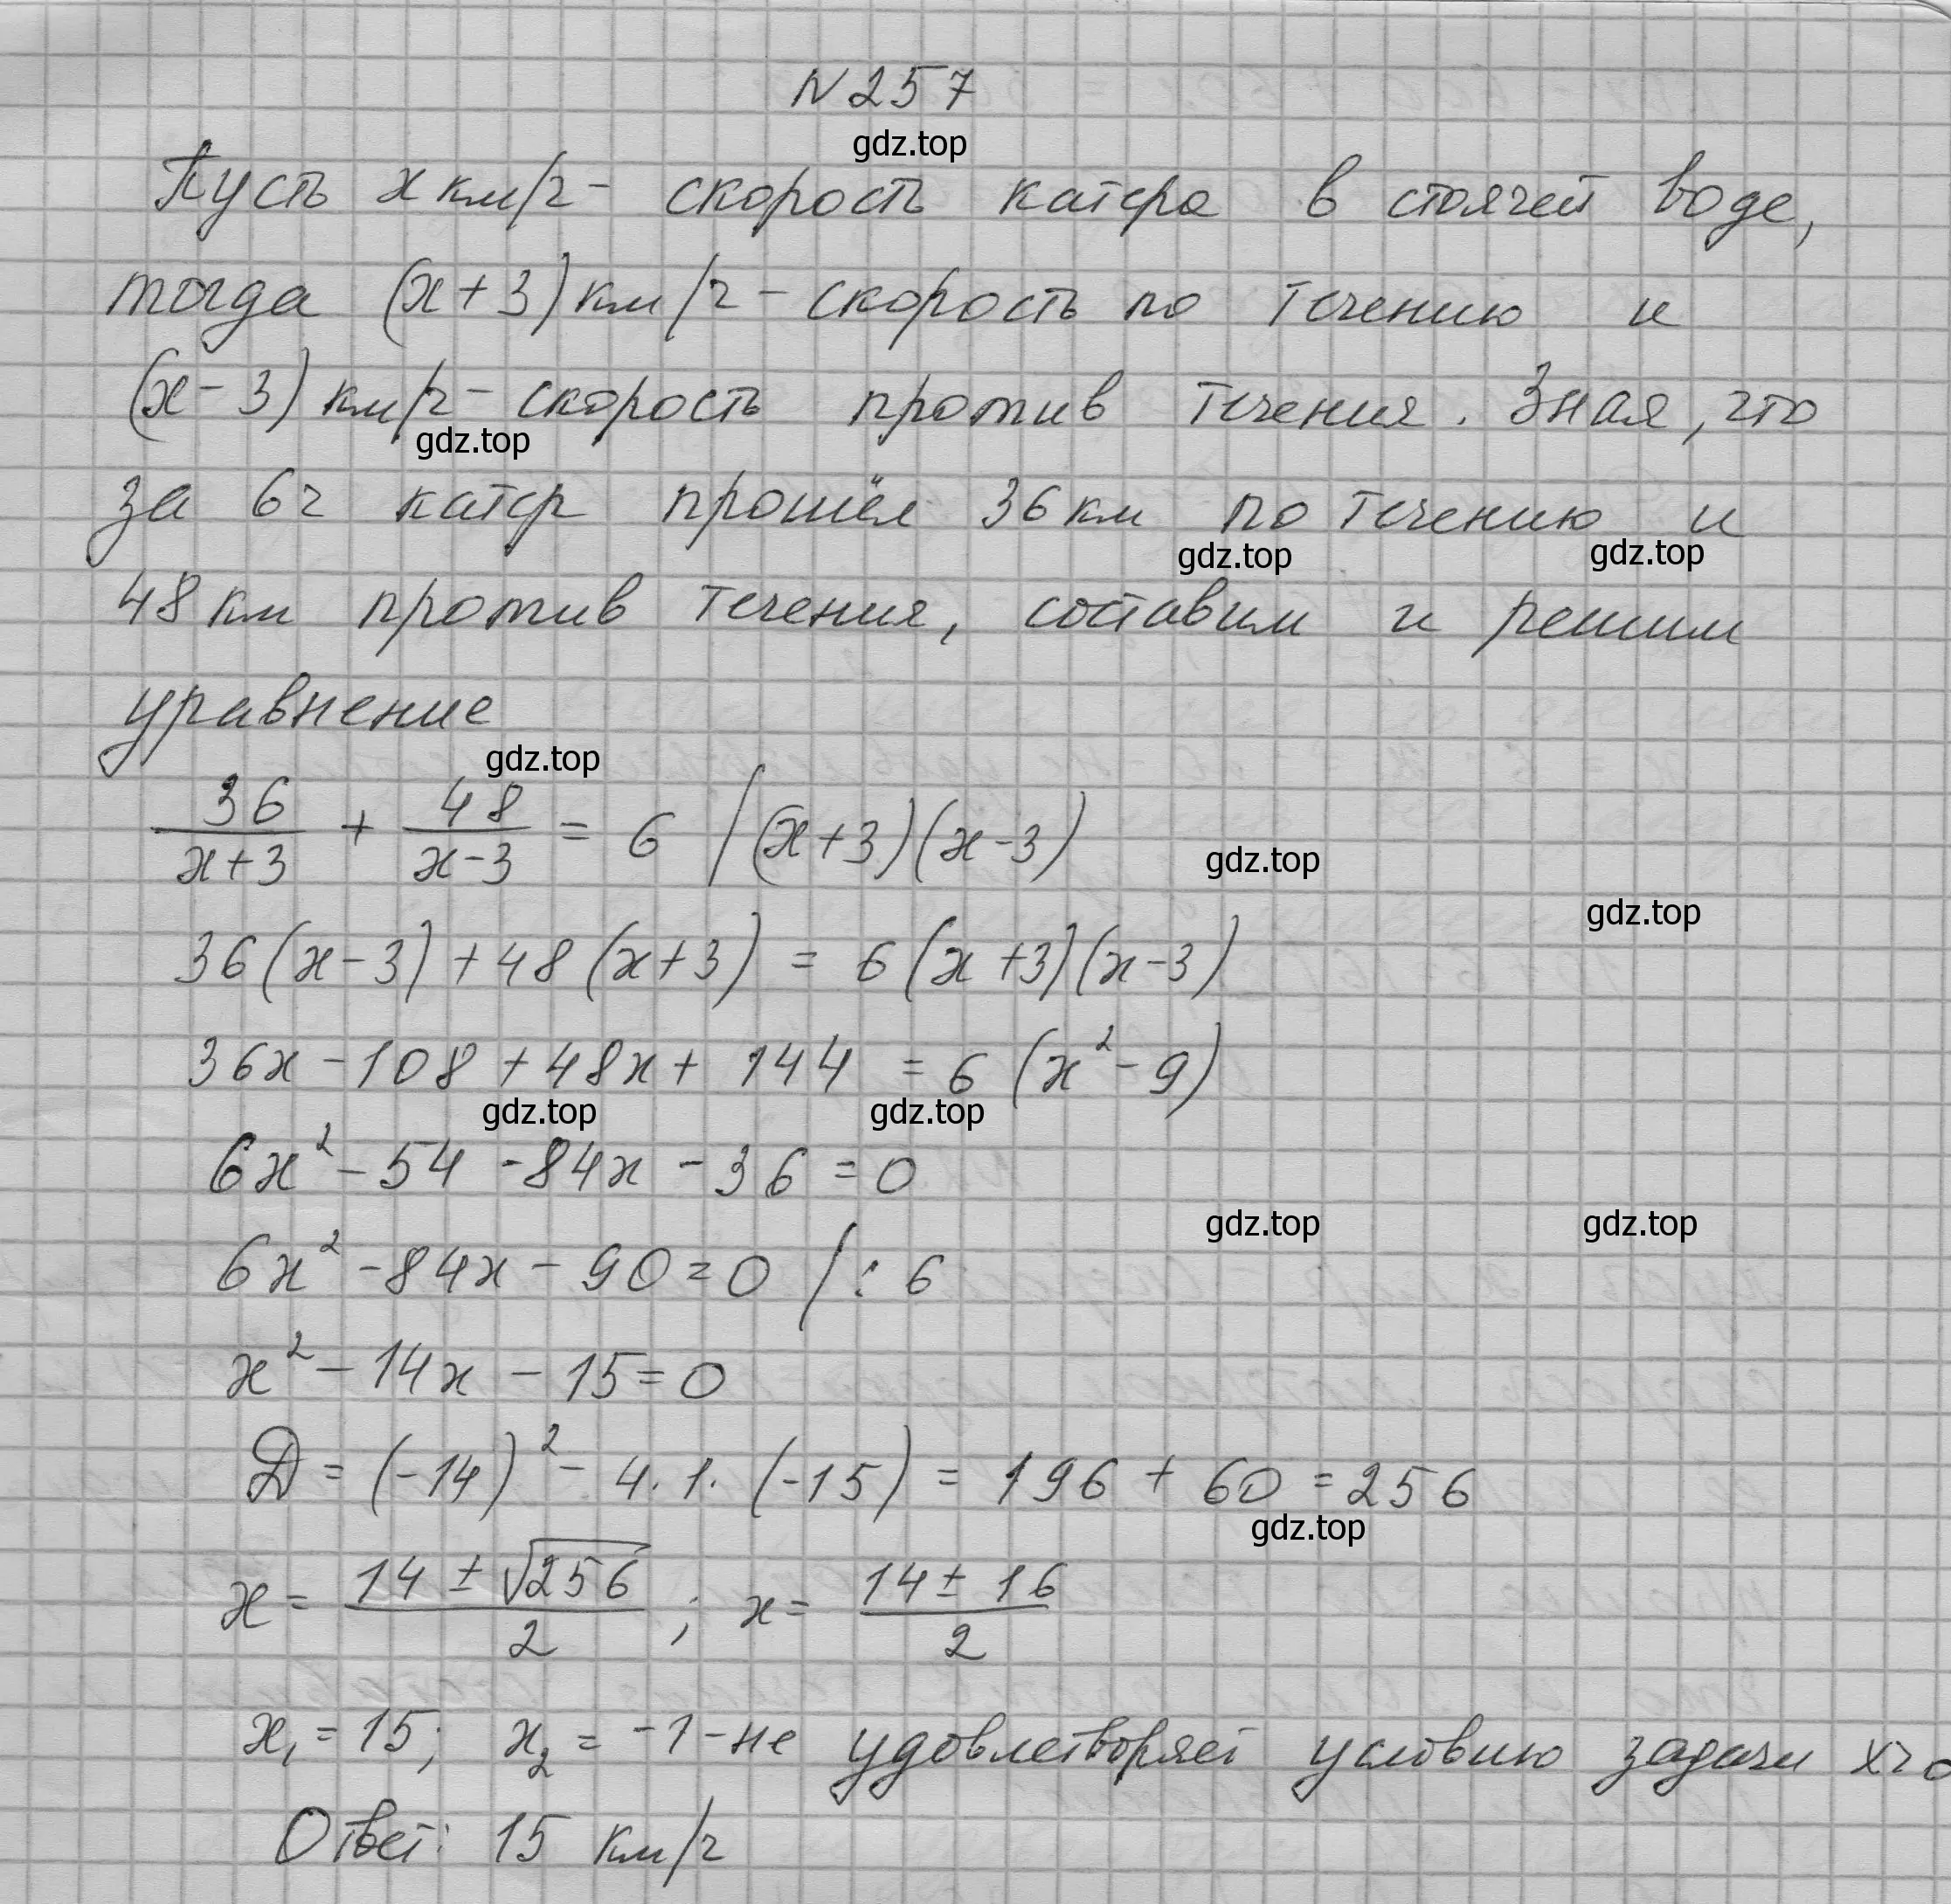 N 257
gdz.top
Пусть x км/ч - скорость катера в стоячей воде,
тогда (x+3) км/ч - скорость по течению и
(x-3) км/ч - скорость против течения. Зная, что
gdz.top
за 6ч катер прошёл 36 км по течению и
gdz.top gdz.top
48 км против течения, составим и решим
уравнение
gdz.top
36/(x+3) + 48/(x-3) = 6 |(x+3)(x-3)
gdz.top
gdz.top
36(x-3)+48(x+3) = 6(x+3)(x-3)
36x-108+48x+144 = 6(x²-9)
gdz.top gdz.top
6x²-54-84x-36=0
gdz.top gdz.top
6x²-84x-90=0 |:6
x²-14x-15=0
D=(-14)²-4·1·(-15)=196+60=256
gdz.top
x=(14±√256)/2; x=(14±16)/2
x₁=15; x₂=-1-не удовлетворяет условию задачи x>0
Ответ: 15 км/ч